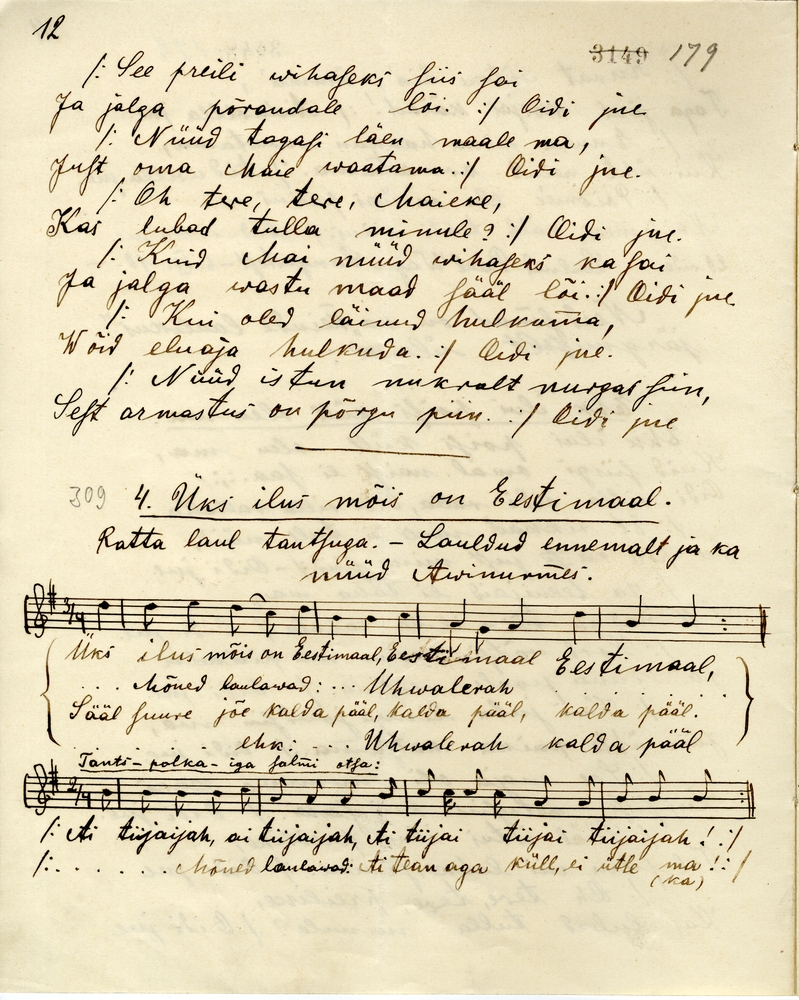 12
3149 179
/: See preili wihaseks siis sai
Ja jalga põrandale lõi. :/ Oidi jne
/: Nüüd tagasi läen maale ma,
Just oma Maie waatama. :/ Oidi jne.
/: Oh tere, tere, Maieke,
Kas lubad tulla minule? :/ Oidi jne.
/: Kuid Mai nüüd wihaseks ka sai
Ja jalga wastu maad sääl lõi. :/ Oidi jne
/: Kui oled läinud hulkuma,
Wõid eluaja hulkuda. :/ Oidi jne.
/: Nüüd istun nukralt nurgas siin,
Sest armastus on põrgu piin. :/ Oidi jne
309 4. Üks ilus mõis on Eestimaal.
Ratta laul tantsuga. – Lauldud ennemalt ja ka
nüüd Awinurmes.
3/4
Üks ilus mõis on Eestimaal, Eestimaal Eestimaal,
... Mõned laulawad: ... Uhwalerah . . . .
Sääl suure jõe kalda pääl, kalda pääl, kalda pääl.
. . . . ehk: ... Uhwalerah kalda pääl
Tants-polka-iga salmi otsa:
2/4
/: Ai tiijaijah, ai tiijaijah, Ai tiijai tiijai tiijaijah! :/
/: . . . . . . Mõned laulawad: Ai tean aga küll, ei ütle ma! :/
(ka)